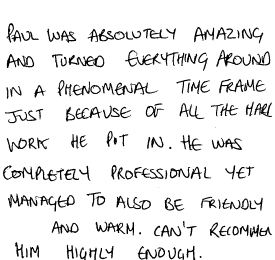 PAUL WAS ABSOLUTELY AMAZING
AND TURNED EVERYTHING AROUND
IN A PHENOMENAL TIME FRAME
JUST BECAUSE OF ALL THE HARD
WORK HE PUT IN. HE WAS
COMPLETELY PROFESSIONAL YET
MANAGED TO ALSO BE FRIENDLY
AND WARM. CAN'T RECOMMEN
HIM HIGHLY ENOUGH.